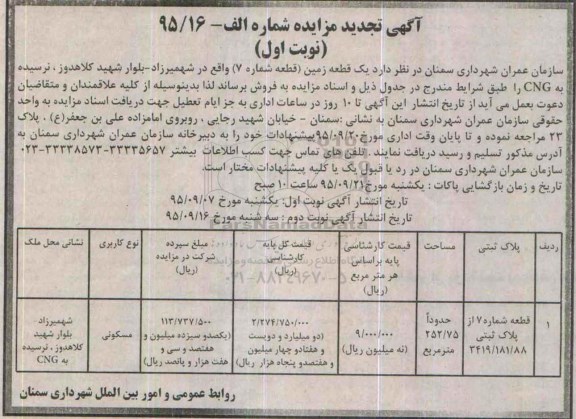 آگهی تجدید مزایده شماره الف- ۹۵/۱۶
(نوبت اول)
سازمان عمران شهرداری سمنان در نظر دارد یک قطعه زمین (قطعه شماره ۷) واقع در شهمیرزاد-بلوار شهید کلاهدوز ، نرسیده
به CNG را طبق شرایط مندرج در جدول ذیل و اسناد مزایده به فروش برساند لذا بدینوسیله از کلیه علاقمندان و متقاضیان
دعوت بعمل می آید از تاریخ انتشار این آگهی تا ۱۰ روز در ساعات اداری به جز ایام تعطیل جهت دریافت اسناد مزایده به واحد
حقوقی سازمان عمران شهرداری سمنان به نشانی :سمنان - خیابان شهید رجایی ، روبروی امامزاده علی بن جعفر(ع) ، پلاک
۲۳ مراجعه نموده و تا پایان وقت اداری مورخ ۹۵/۰۹/۲۰ پیشنهادات خود را به دبیرخانه سازمان عمران شهرداری سمنان به
آدرس مذکور تسلیم و رسید دریافت نمایند . تلفن های تماس جهت کسب اطلاعات بیشتر ۳۳۳۳۵۶۵۷-۳۳۳۳۸۵۷۳-۰۲۳
سازمان عمران شهرداری سمنان در رد یا قبول یک یا کلیه پیشنهادات مختار است.
تاریخ و زمان بازگشایی پاکات : یکشنبه مورخ ۹۵/۰۹/۲۱ ساعت ۱۰ صبح
تاریخ انتشار آگهی نوبت اول: یکشنبه مورخ ۹۵/۰۹/۰۷
تاریخ انتشار آگهی نوبت دوم : سه شنبه مورخ ۹۵/۰۹/۱۶
ردیف پلاک ثبتی مساحت قیمت کارشناسی پایه براساس هر متر مربع (ریال) قیمت کل پایه کارشناسی (ریال) مبلغ سپرده شرکت در مزایده (ریال) نوع کاربری نشانی محل ملک
۱ قطعه شماره ۷ از پلاک ثبتی ۳۴۱۹/۱۸۱/۸۸ حدوداً ۲۵۲/۷۵ مترمربع ۹/۰۰۰/۰۰۰ (نه میلیون ریال) ۲/۲۷۴/۷۵۰/۰۰۰ (دو میلیارد و دویست و هفتادو چهار میلیون و هفتصدو پنجاه هزار ریال) ۱۱۳/۷۳۷/۵۰۰ (یکصدو سیزده میلیون و هفتصد و سی و هفت هزار و پانصد ریال) مسکونی شهمیرزاد- بلوار شهید کلاهدوز ، نرسیده به CNG
روابط عمومی و امور بین الملل شهرداری سمنان